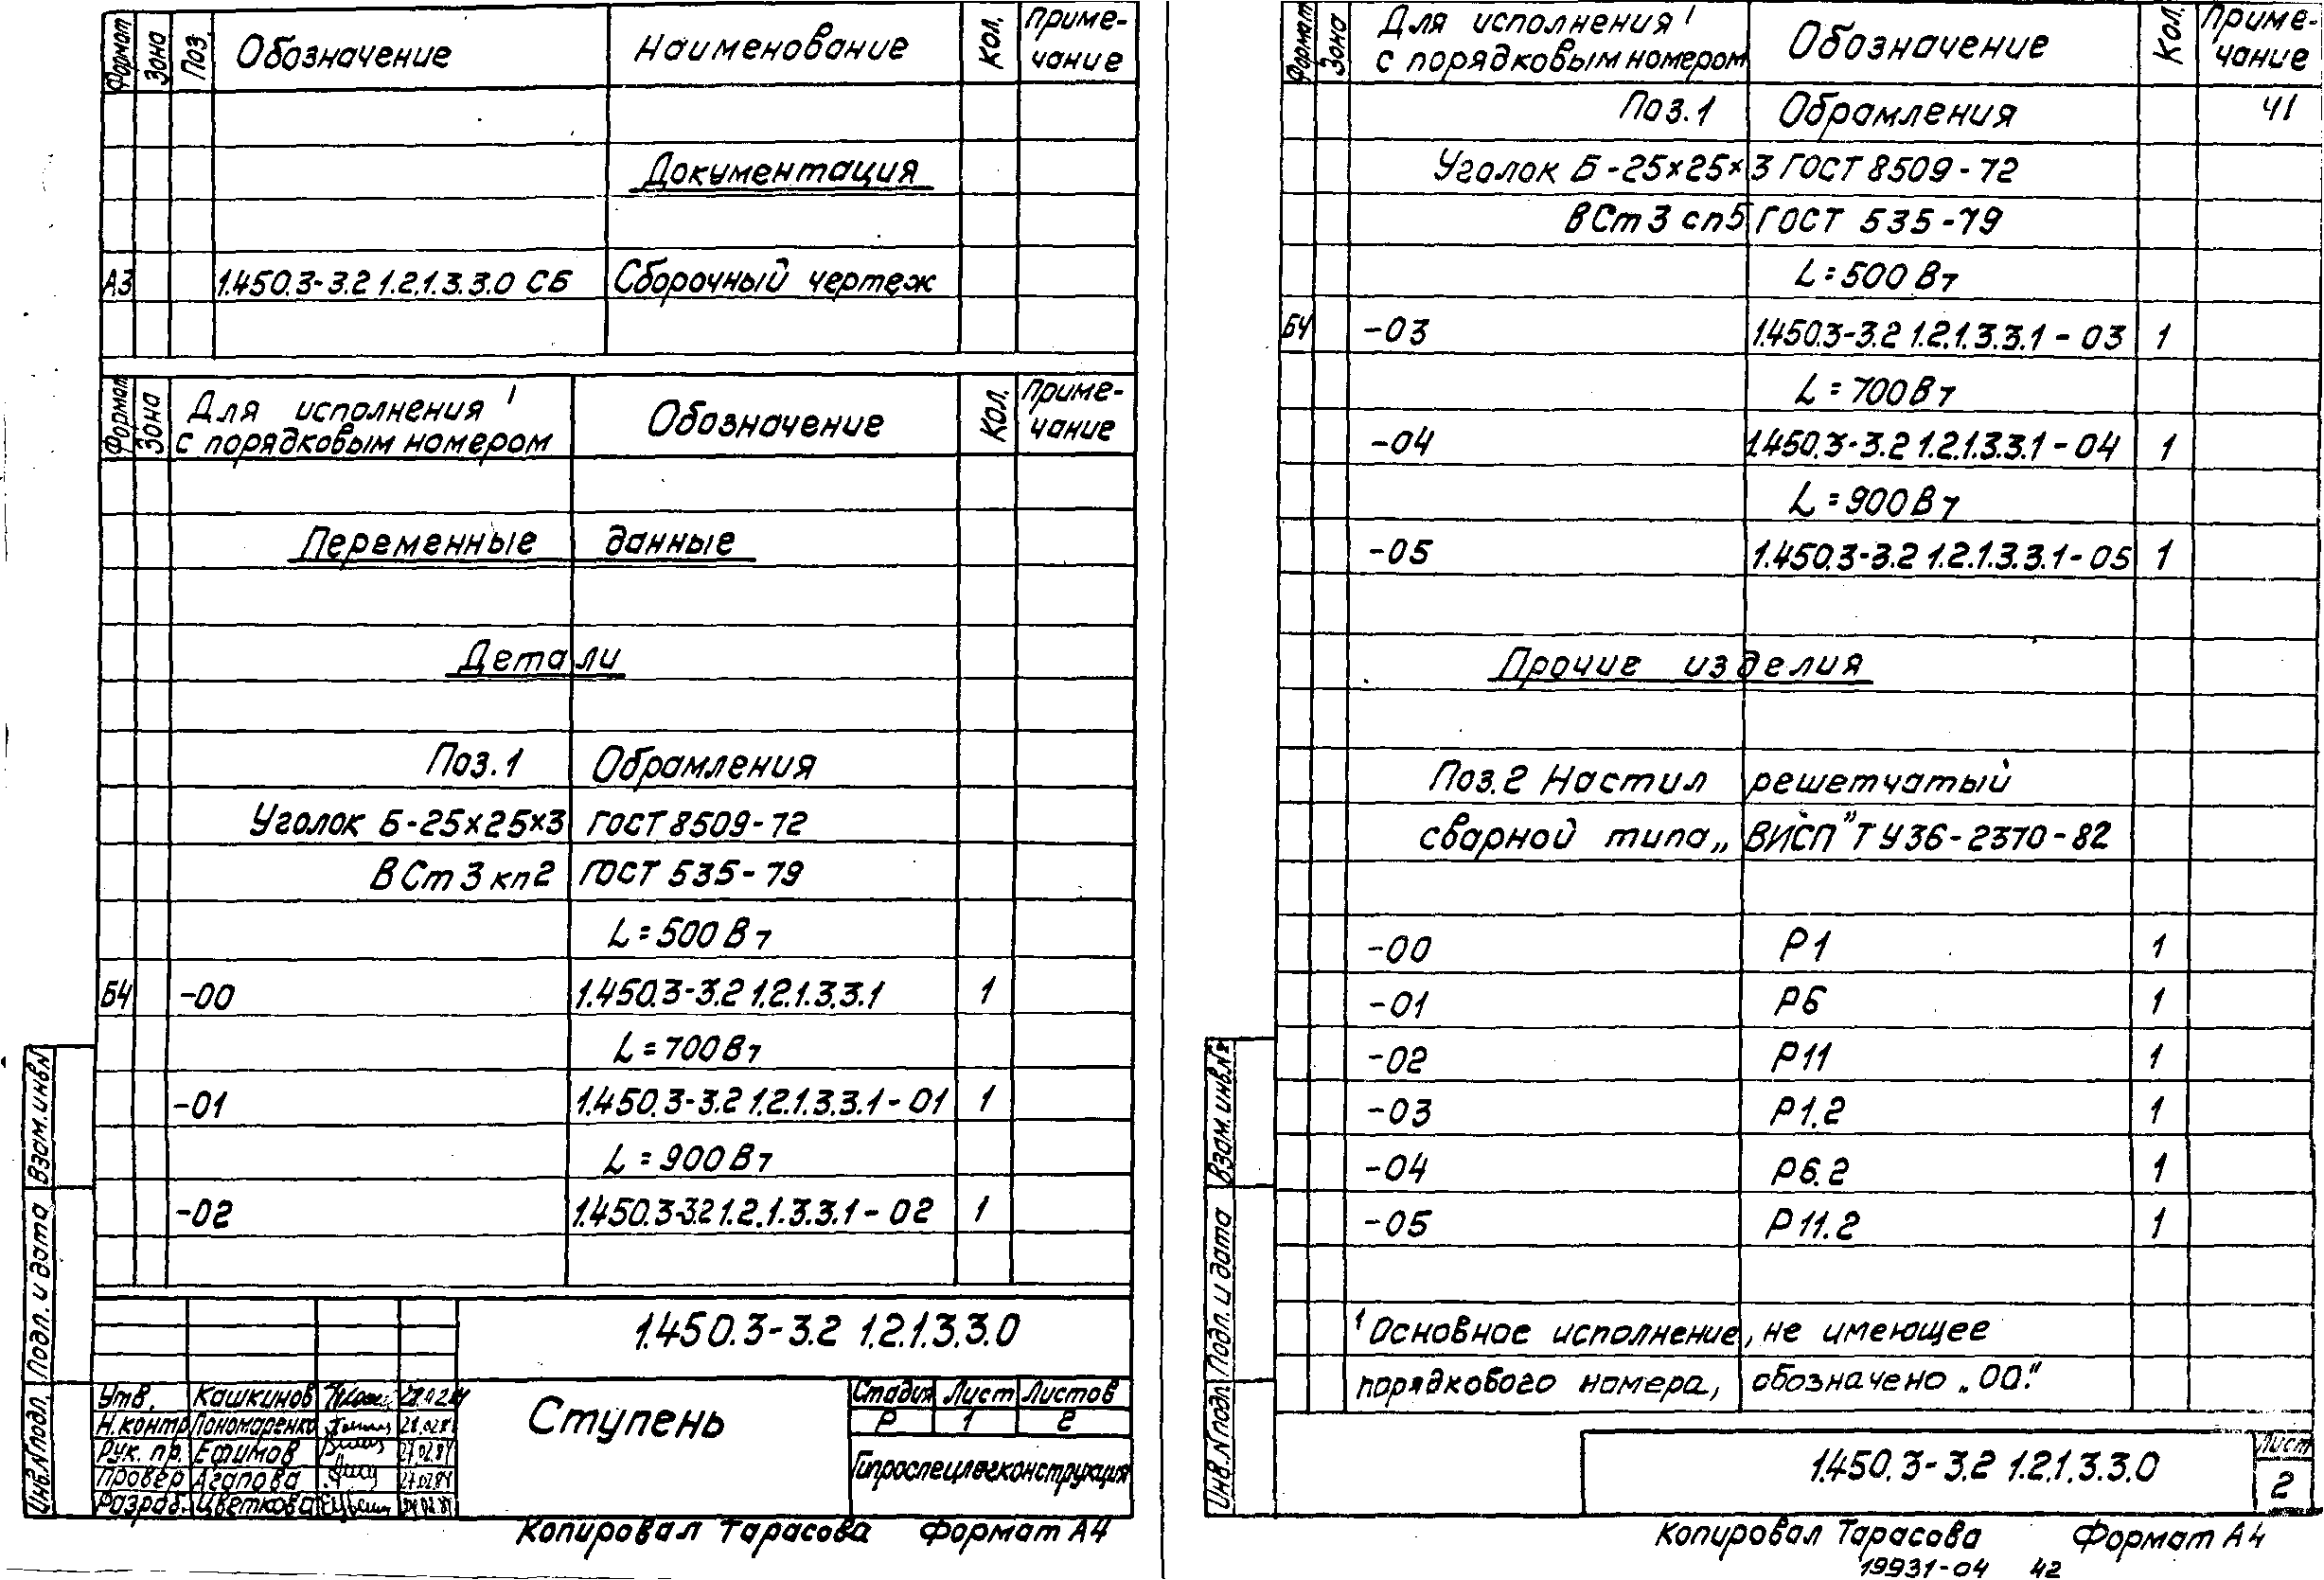 Формат Зона Поз. Обозначение Наименование Кол. Приме-
чание
Документация
А3 1.450.3-3.2 1.2.1.3.3.0 СБ Сборочный чертеж
Формат Зона Для исполнения ¹ Обозначение Кол. Приме-
с порядковым номером чание
Переменные данные
Детали
Поз.1 Обрамления
Уголок Б-25×25×3 ГОСТ 8509-72
ВСт3кп2 ГОСТ 535-79
L=500Вт
Б4 -00 1.450.3-3.2 1.2.1.3.3.1 1
L=700Вт
-01 1.450.3-3.2 1.2.1.3.3.1-01 1
L=900Вт
-02 1.450.3-3.2 1.2.1.3.3.1-02 1
Взам.инв.№
Подп. и дата
Инв.№подл.
1.450.3-3.2 1.2.1.3.3.0
Утв. Кашкинов 28.02.84
Н.контр Пономаренко 28.02.84
Рук. пр. Ефимов 27.02.84
Провер Агапова 27.02.84
Разраб. Цветкова
Ступень
Стадия Лист Листов
Р 1 2
Гипроспецлегконструкция
Копировал Тарасова Формат А4
Формат Зона Для исполнения ¹ Обозначение Кол. Приме-
с порядковым номером чание
Поз.1 Обрамления 41
Уголок Б-25×25×3 ГОСТ 8509-72
ВСт3сп5 ГОСТ 535-79
L=500Вт
Б4 -03 1.450.3-3.2 1.2.1.3.3.1-03 1
L=700Вт
-04 1.450.3-3.2 1.2.1.3.3.1-04 1
L=900Вт
-05 1.450.3-3.2 1.2.1.3.3.1-05 1
Прочие изделия
Поз.2 Настил решетчатый
сварной типа „ВИСП" ТУ36-2370-82
-00 Р1 1
-01 Р6 1
-02 Р11 1
-03 Р1.2 1
-04 Р6.2 1
-05 Р11.2 1
¹ Основное исполнение, не имеющее
порядкового номера, обозначено „00."
Взам.инв.№
Подп. и дата
Инв.№подл.
1.450.3-3.2 1.2.1.3.3.0
Лист
2
Копировал Тарасова Формат А4
19931-04 42